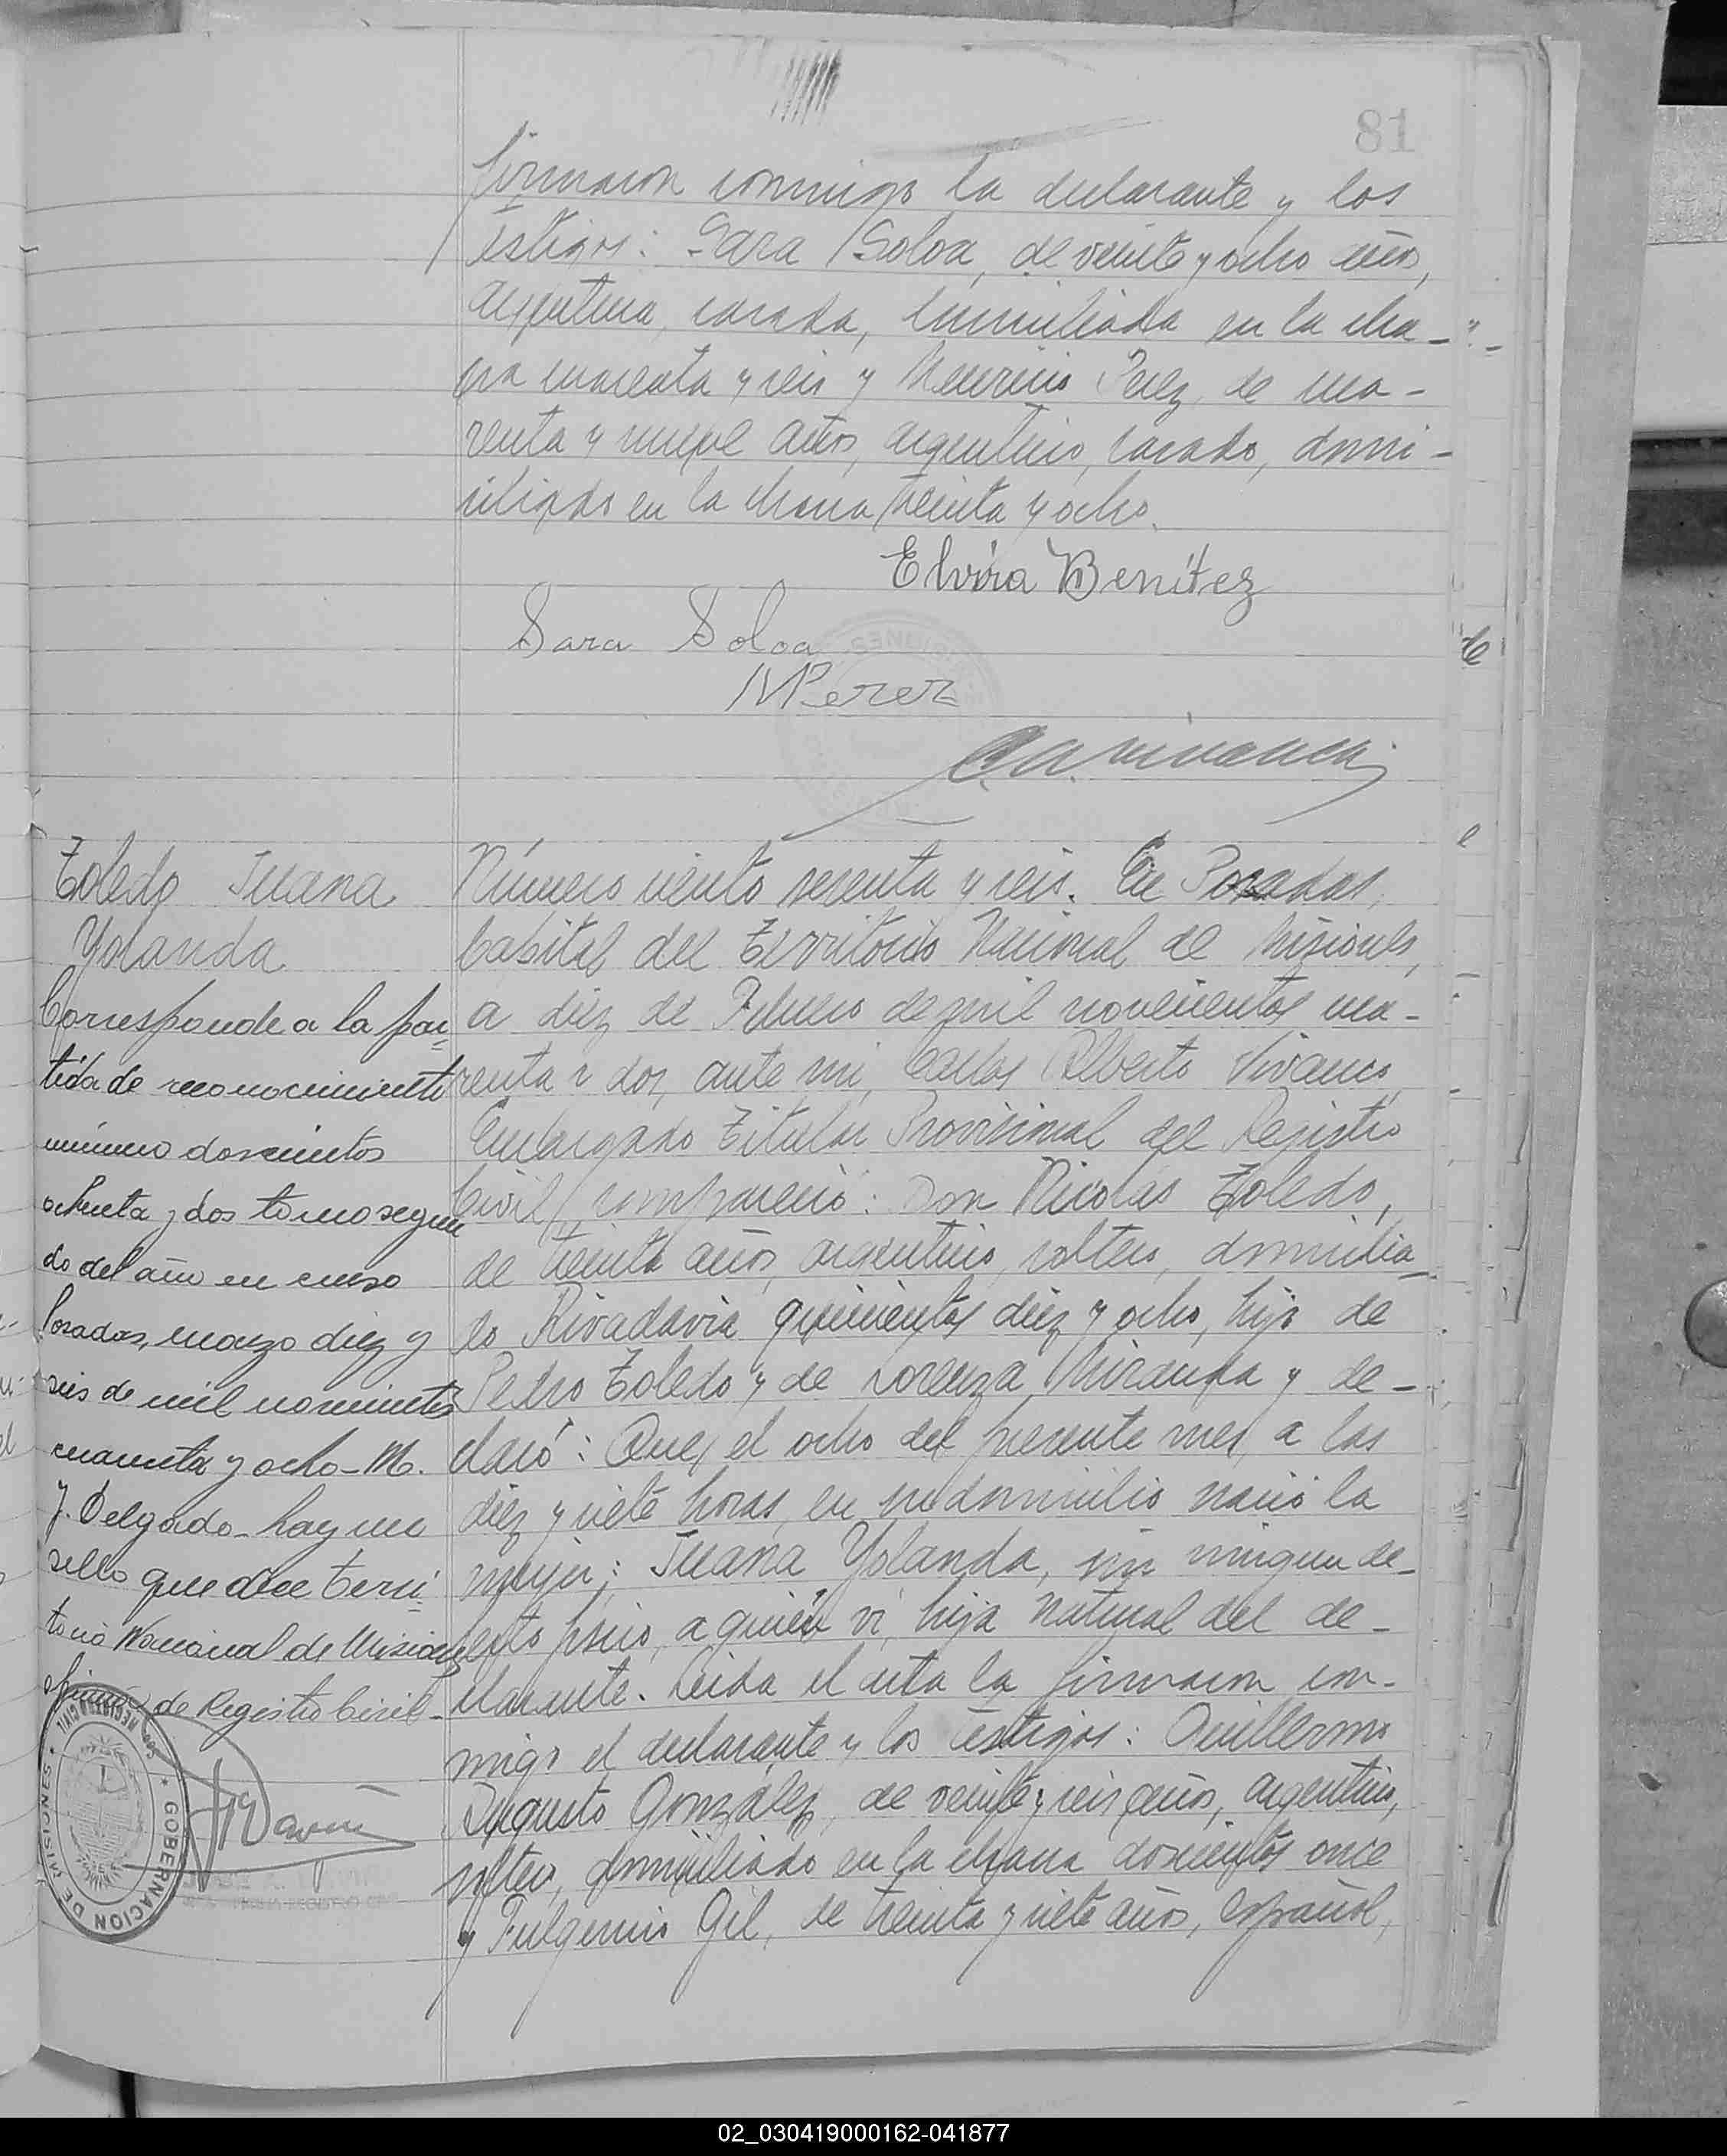 81
firmaron conmigo la declarante y los
testigos: Sara Soloa, de veinte y ocho años,
argentina, casada, domiciliada en la cha-
cra cuarenta y seis y Perez, de cua-
renta y nueve años, argentino, casado, domi-
ciliado en la chacra treinta y ocho.
Elvira Benítez
Sara Soloa
M Perez
Toledo Juana
Yolanda
Corresponde a la par
tida de reconocimiento
número doscientos
ochenta y dos tomo segun
do del año en curso
Posadas, marzo diez y
seis de mil novecientos
cuarenta y ocho - M.
J. Delgado - hay un
sello que dice Terri
torio Nacional de Misiones
de Registro Civil -
REGISTRO CIVIL * GOBERNACION DE MISIONES *
Número ciento sesenta y seis. En Posadas,
Capital del Territorio Nacional de Misiones,
a diez de Febrero de mil novecientos cua-
renta y dos, ante mi, Carlos Alberto Vivanco,
Encargado Titular Provisional del Registro
Civil, compareció: Don Nicolás Toledo,
de treinta años, argentino, soltero, domicilia-
do Rivadavia quinientos diez y ocho, hijo de
Pedro Toledo y de Lorenza Miranda y de-
claró: Que, el ocho del presente mes, a las
diez y siete horas, en su domicilio nació la
mujer: Juana Yolanda, sin ningun de-
fecto fisico, a quién vi, hija natural del de-
clarante. Leida el acta la firmaron con-
migo el declarante y los testigos: Guillermo
Augusto González, de veinte y seis años, argentino,
soltero, domiciliado en la chacra doscientos once
y Fulgencio Gil, de treinta y siete años, español,
02_030419000162-041877